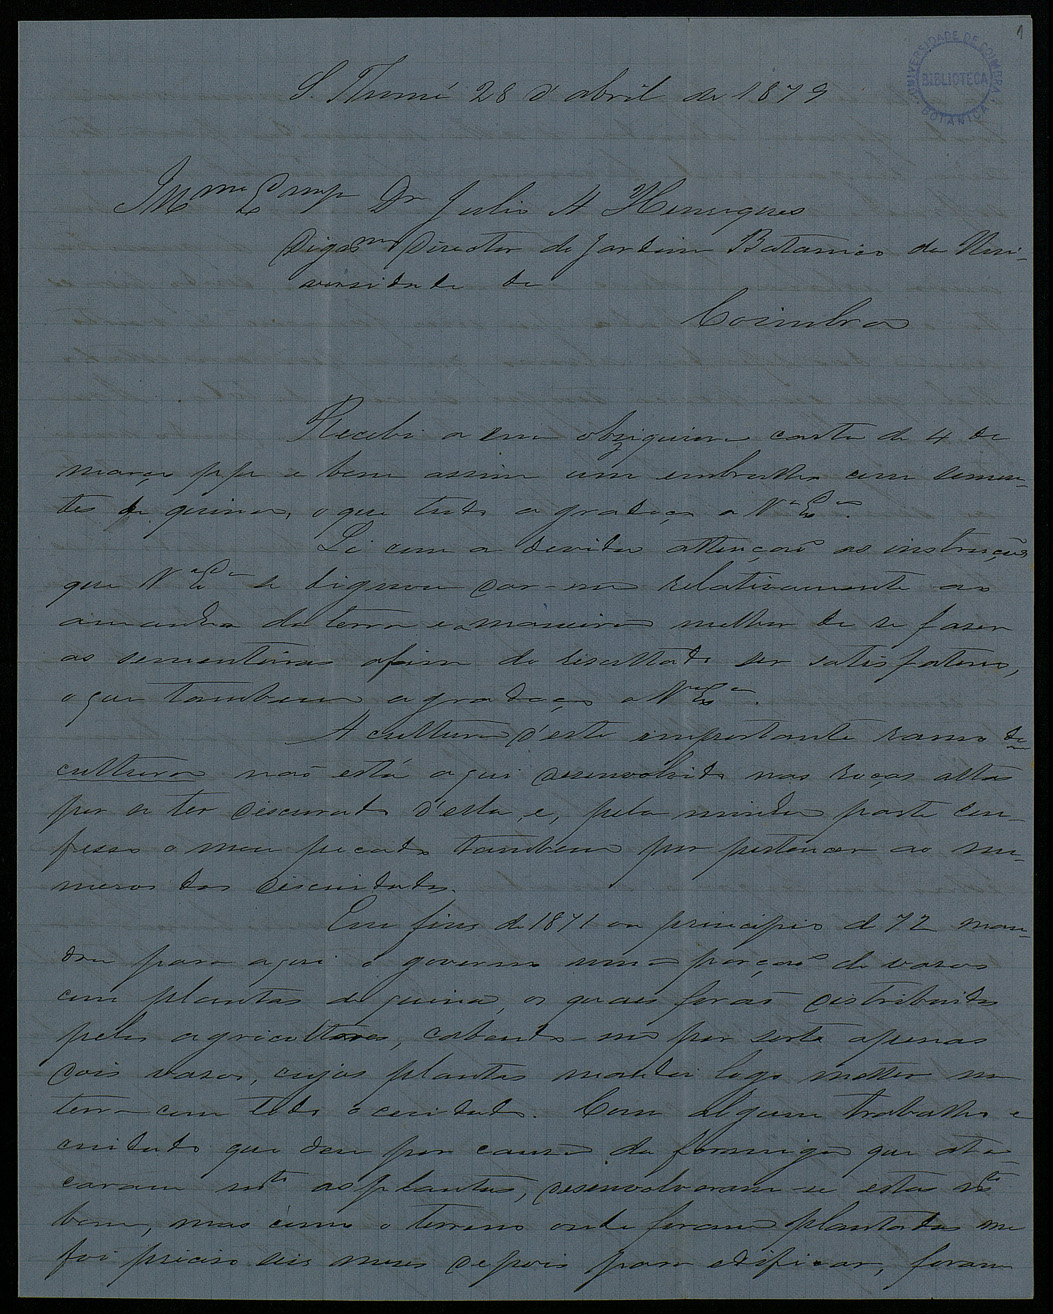 1
UNIVERSIDADE DE COIMBRA
BIBLIOTECA
BOTANICA
S. Thomé 28 d'abril de 1879
Illmo Exmo Sr Dr Julio A Henriques
Digmo Director do Jardim Botanico da Uni-
versidade de
Coimbra
Recebi a sua obsequiosa carta de 4 de
março pp e bem assim um embrulho com semen-
tes de quina, o que tudo agradeço a V.a Ex.a.
Li com a devida attenção as instruções
que V.a Ex.a se dignou dar-me relativamente ao
amanho da terra e a maneira melhor de se fazer
as sementeiras afim do resultado ser satisfatorio,
o que tambem agradeço a V.a Ex.a.
A cultura d'este importante ramo de
cultura não está aqui desenvolvido nas roças altas
por se ter descurado d'ella e, pela minha parte con-
fesso o meu peccado tambem por pertencer ao nu-
mero dos descuidados.
Em fins de 1871 ou principio de 72 man-
dou para aqui o governo uma porção de vasos
com plantas de quina, os quaes forão distribuidos
pelos agricultores, cabendo-me por sorte apenas
dois vasos, cujas plantas mandei logo metter na
terra com todo o cuidado. Com algum trabalho e
cuidado que deu por causa da formiga que ata-
caram mto as plantas, desenvolveram-se estas mto
bem, mas como o terreno onde foram plantadas me
foi preciso seis mezes depois para edificar, foram